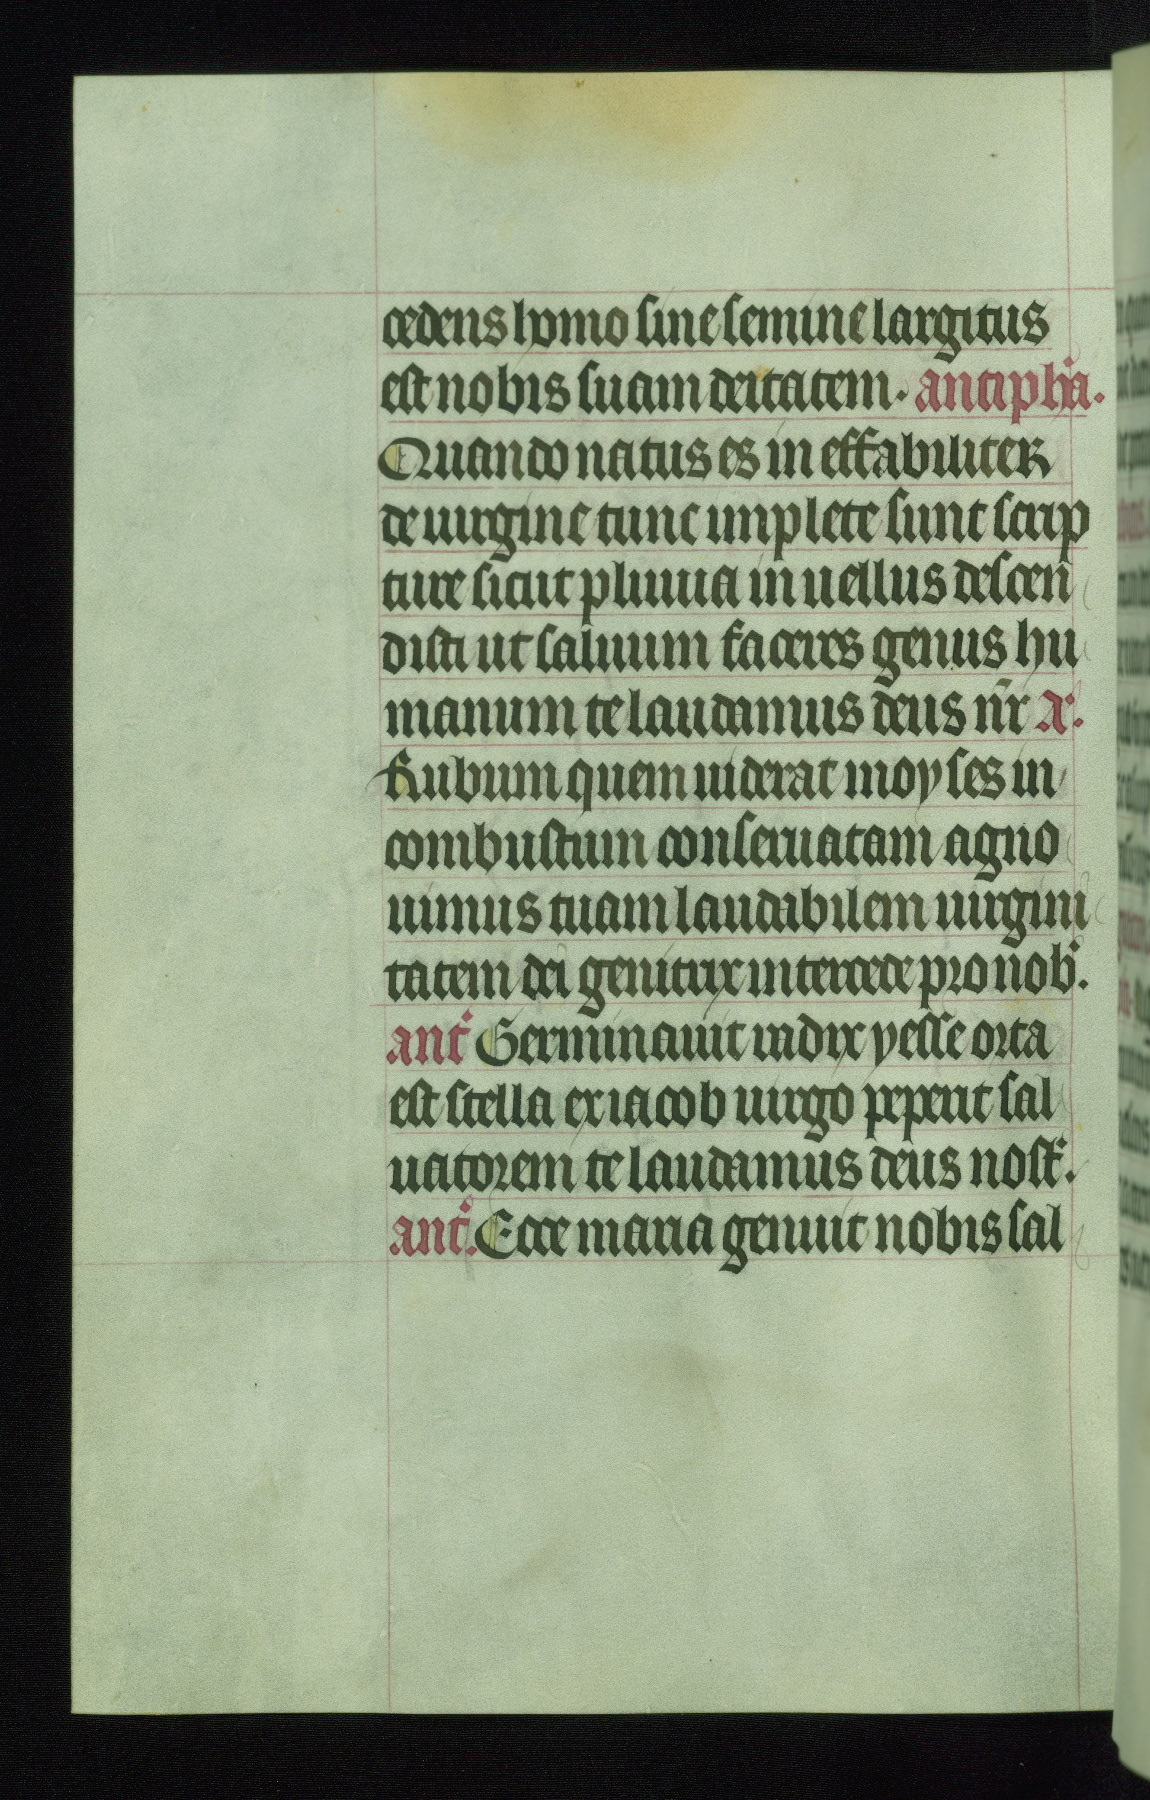 cedens homo sine semine largitus
est nobis suam deitatem. antiph̄a.
Quando natus es in effabiliter
de uirgine tunc implete sunt scrip
ture sicut pluuia in uellus descen
disti ut saluum faceres genus hu
manum te laudamus deus nr̄ A.
Rubum quem uiderat moyses in
combustum conseruatam agno
uimus tuam laudabilem uirgini
tatem dei genitrix intercede pro nob.
ant Germinauit radix yesse orta
est stella ex iacob uirgo peperit sal
uatorem te laudamus deus nost.
ant. Ecce maria genuit nobis sal